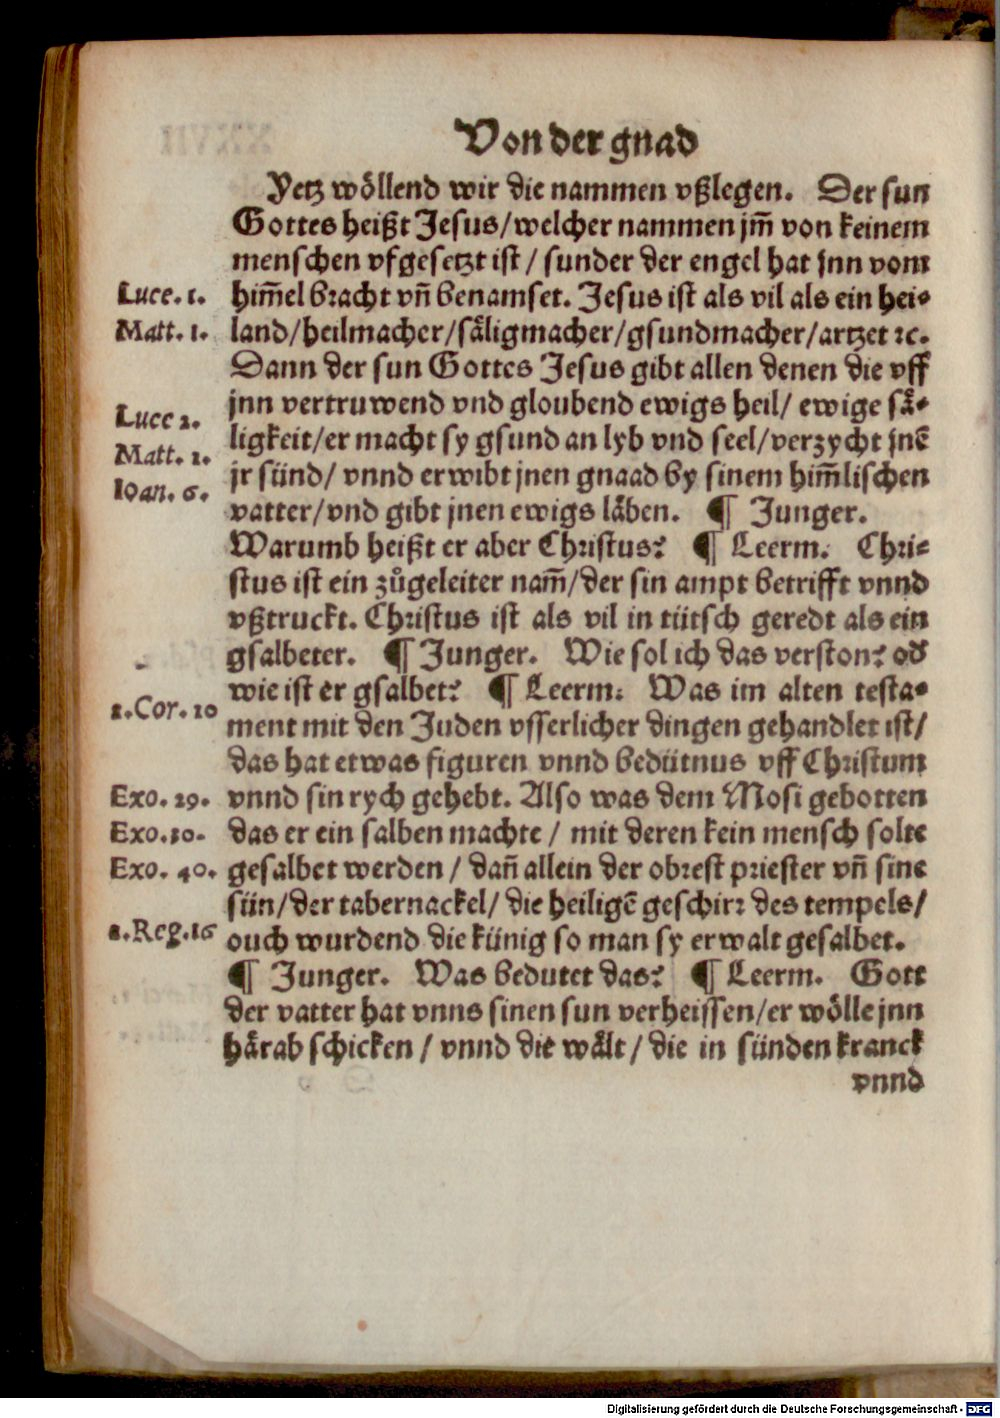 Von der gnad
Yetz wöllend wir die nammen vßlegen. Der sun
Gottes heißt Jesus/welcher nammen jm̃ von keinem
menschen vfgesetzt ist / sunder der engel hat jnn vom
Luce. 1. him̃el bracht vñ benamset. Jesus ist als vil als ein hei-
Matt. 1. land/heilmacher/säligmacher/gsundmacher/artzet ꝛc.
Dann der sun Gottes Jesus gibt allen denen die vff
Luce 2. jnn vertruwend vnd gloubend ewigs heil/ ewige sä-
Matt. 1. ligkeit/er macht sy gsund an lyb vnd seel/verzycht jnẽ
Ioan. 6. jr sünd/ vnnd erwibt jnen gnaad by sinem him̃lischen
vatter/vnd gibt jnen ewigs läben. ¶ Junger.
Warumb heißt er aber Christus? ¶ Leerm. Chri-
stus ist ein zůgeleiter nam̃/der sin ampt betrifft vnnd
vßtruckt. Christus ist als vil in tütsch geredt als ein
gsalbeter. ¶ Junger. Wie sol ich das verston? od'
wie ist er gsalbet? ¶ Leerm. Was im alten testa-
1.Cor. 10 ment mit den Juden vsserlicher dingen gehandlet ist/
das hat etwas figuren vnnd bedütnus vff Christum
Exo. 29. vnnd sin rych gehebt. Also was dem Mosi gebotten
Exo.30. das er ein salben machte / mit deren kein mensch solte
Exo. 40. gesalbet werden / dañ allein der obrest priester vñ sine
sün/der tabernackel/ die heiligẽ geschirr des tempels/
1.Reg.16 ouch wurdend die künig so man sy erwalt gesalbet.
¶ Junger. Was bedutet das? ¶ Leerm. Gott
der vatter hat vnns sinen sun verheissen/er wölle jnn
härab schicken / vnnd die wält / die in sünden kranck
vnnd
Digitalisierung gefördert durch die Deutsche Forschungsgemeinschaft - DFG